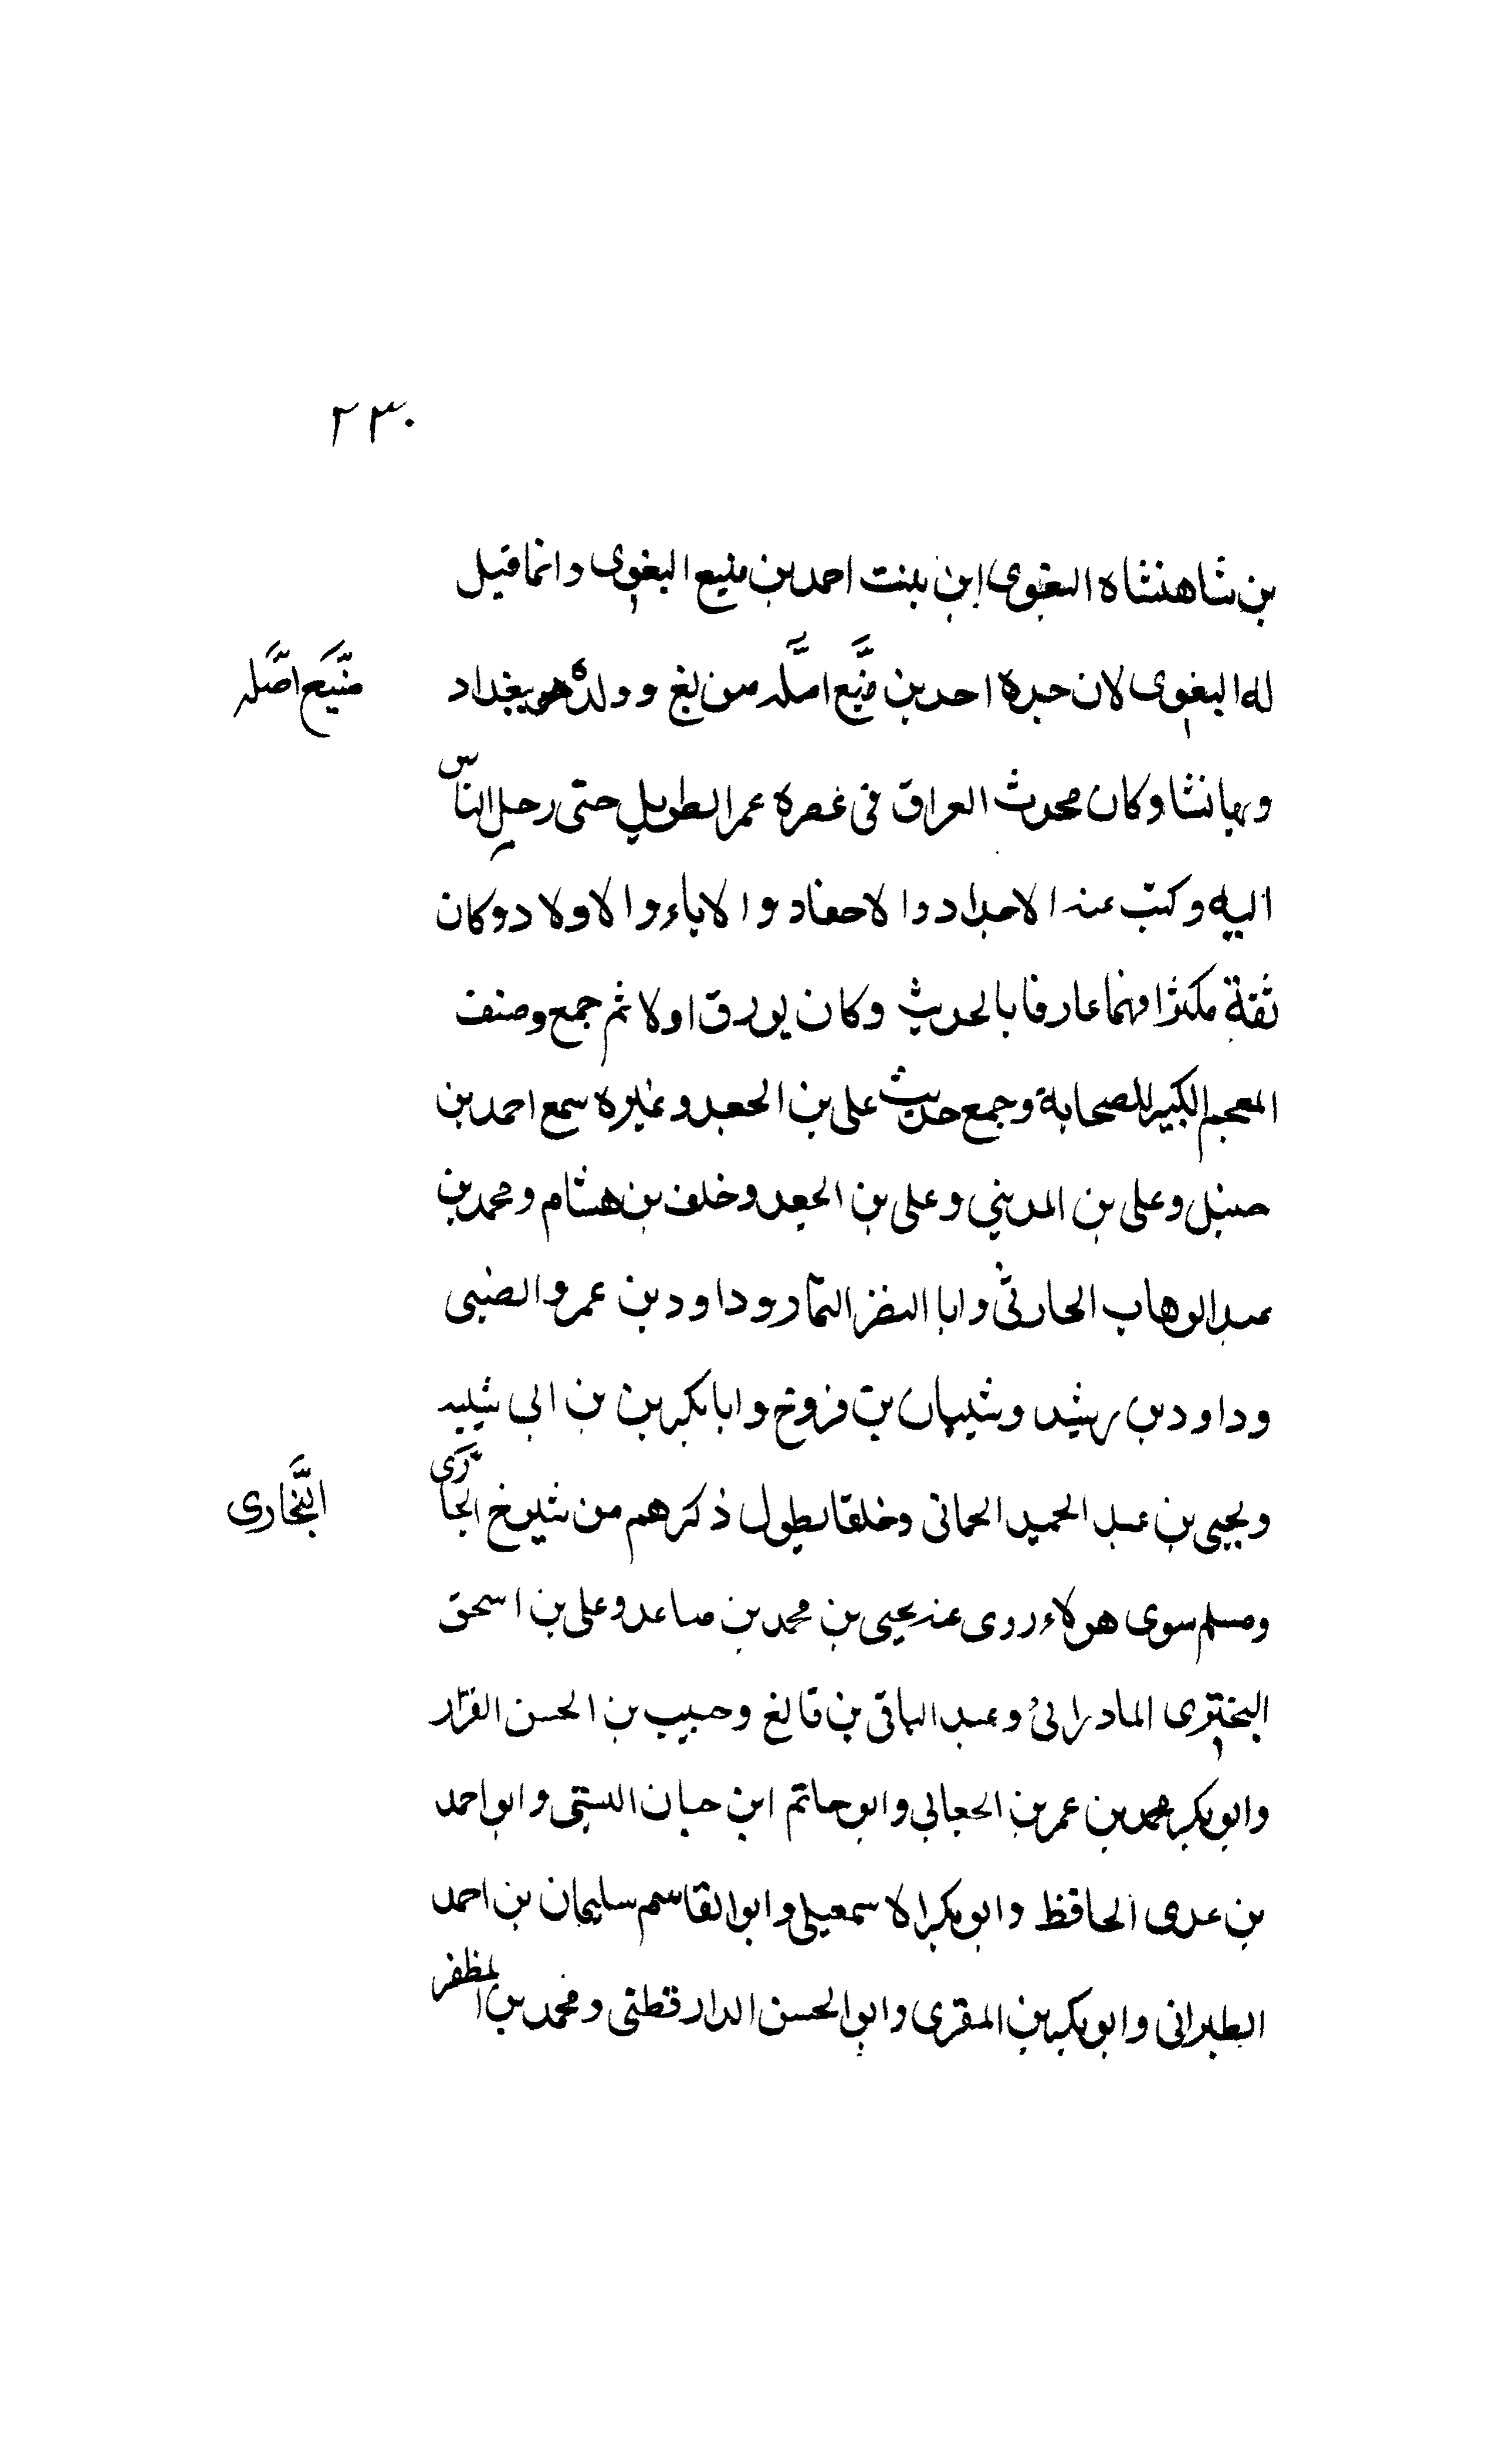 ٢٣٠
بن شاهنشاه البغوى ابن بنت احمد بن منيع البغوى وانما قيل
له البغوى لان جده احمد بن منيع اصله من بغ وولد هو ببغداد
منيع اصله
وبها نشا وكان محدث العراق فى عصره عمر الطويل حتى رحل الناس
اليه وكتب عنه الاجداد والاحفاد والاباء والاولاد وكان
ثقة مكثرا فهما عارفا بالحديث وكان يورق اولا ثم جمع وصنف
المعجم الكبير للصحابة وجمع حديث على بن الجعد وغيره سمع احمد بن
حنبل وعلى بن المديني وعلى بن الجعد وخلف بن هشام ومحمد بن
عبد الوهاب الحارثى وابا النضر التمار وداود بن عمرو الضبى
وداود بن رشيد وشيبان بن فروخ وابا بكر بن بن ابى شيبه
ويحيى بن عبد الحميد الحمانى وخلقا يطول ذكرهم من شيوخ البخارى
البخارى
ومسلم سوى هولاء روى عنه يحيى بن محمد بن صاعد وعلى بن اسحق
البخترى المادرائى وعبد الباقى بن قانع وحبيب بن الحسن القزاز
وابو بكر محمد بن عمر بن الجعابى وابو حاتم ابن حبان البستى وابو احمد
بن عدى الحافظ وابو بكر الاسمعيلى وابو القاسم سليمان بن احمد
الطبرانى وابو بكر بن المقرى وابو الحسن الدارقطنى ومحمد بن المظفر